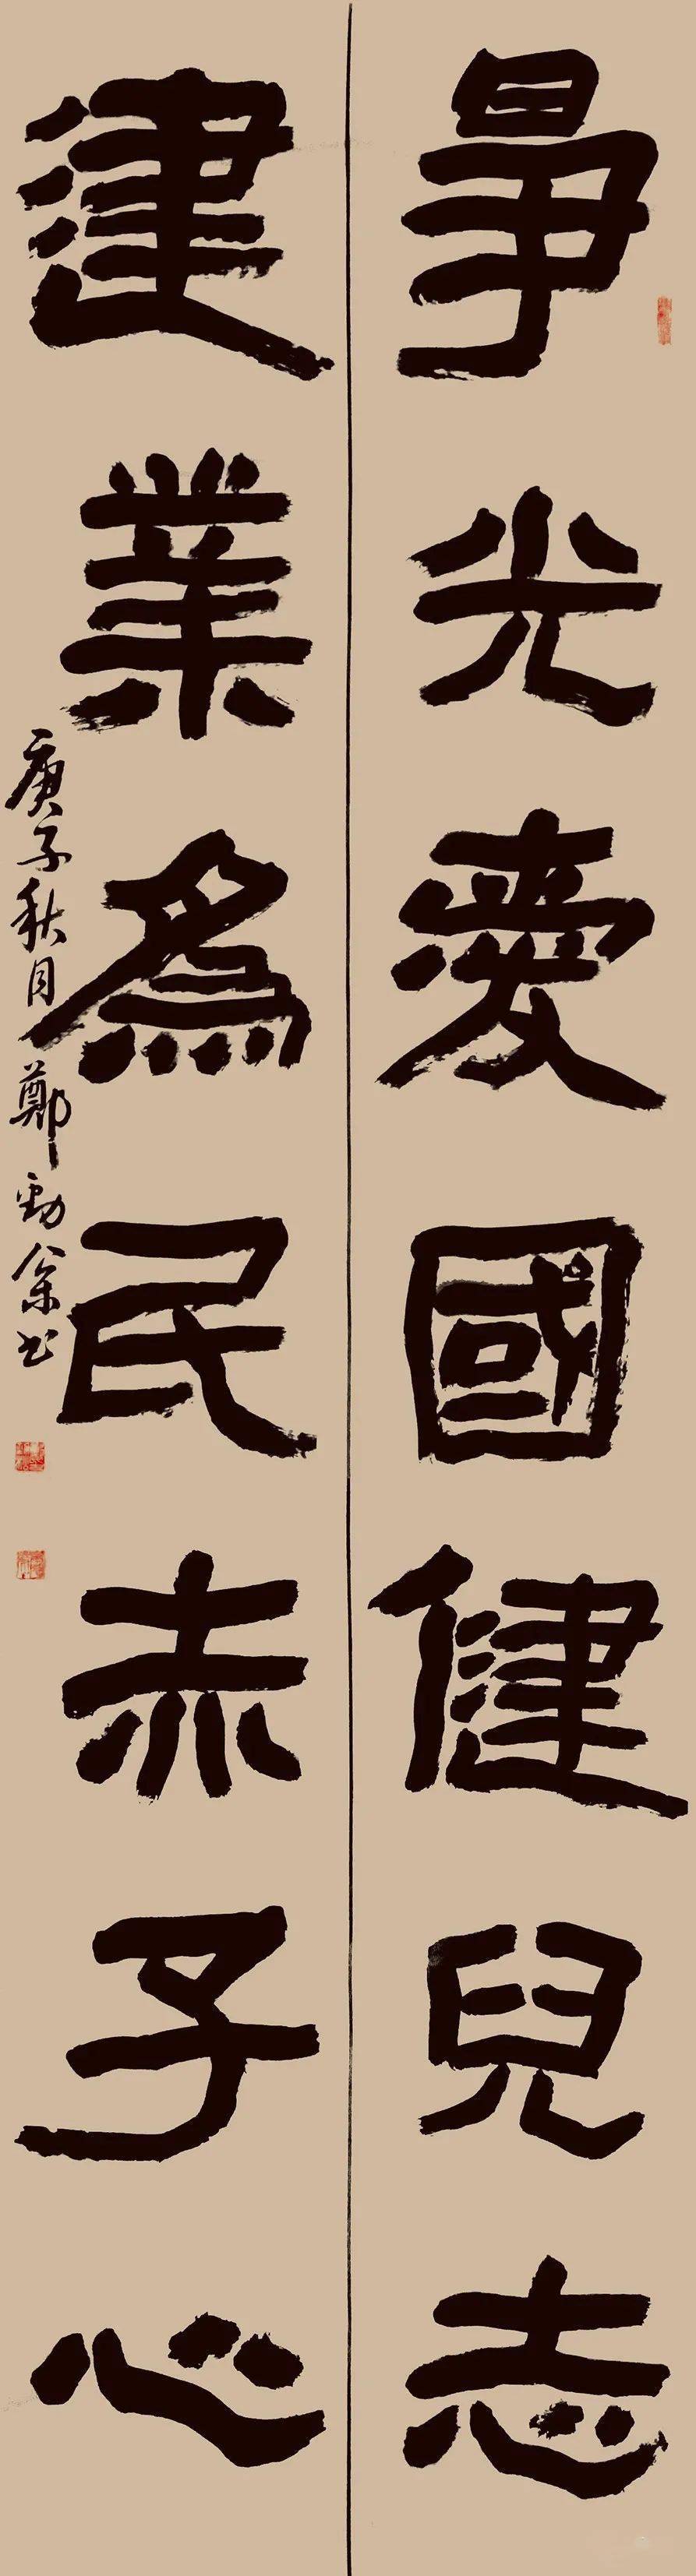 爭光愛國健兒志
建業為民赤子心
庚子秋月鄭勁松書